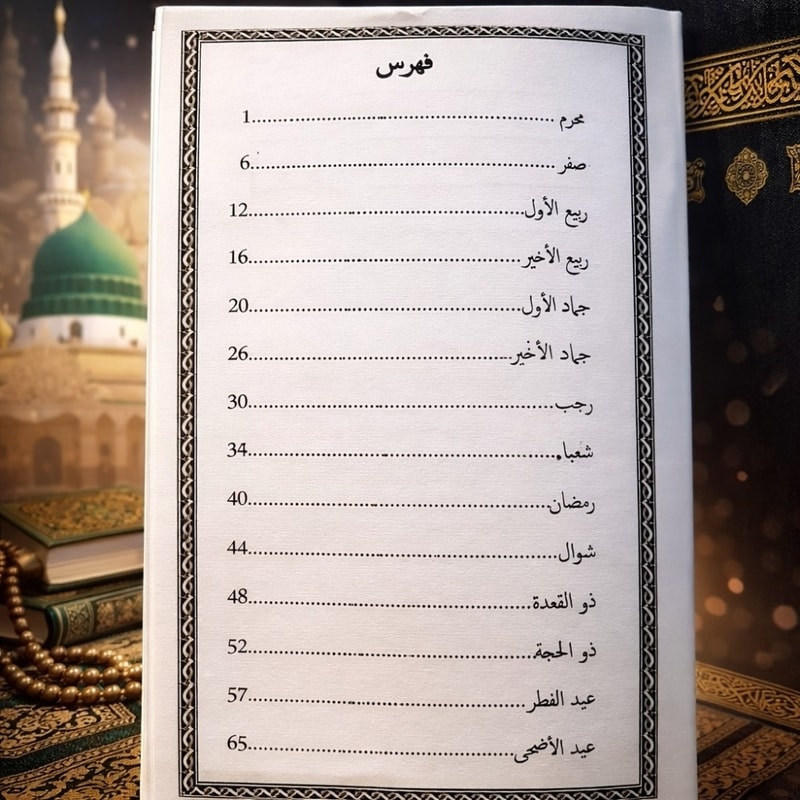 فهرس
محرم ........ 1
صفر ........ 6
ربيع الأول ........ 12
ربيع الأخير ........ 16
جماد الأول ........ 20
جماد الأخير ........ 26
رجب ........ 30
شعبا. ........ 34
رمضان ........ 40
شوال ........ 44
ذو القعدة ........ 48
ذو الحجة ........ 52
عيد الفطر ........ 57
عيد الأضحى ........ 65